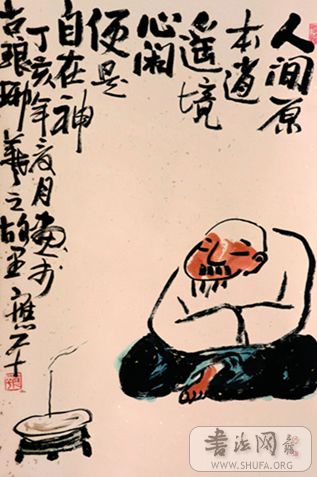 人间原
本逍
遥境
心闲
便是
自在神
丁亥年夏月画于
古琅琊羲之故里
書法网
WWW.SHUFA.ORG